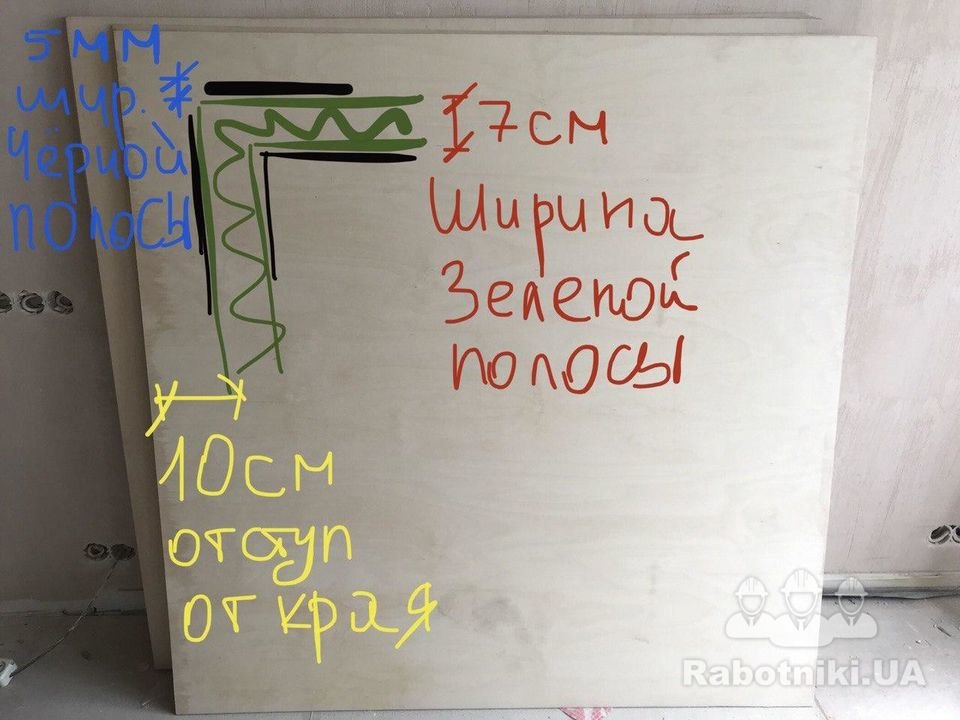 5мм
шир.
Чёрной
полосы
7см
Ширина
Зеленой
полосы
10см
отступ
от края
Rabotniki.UA